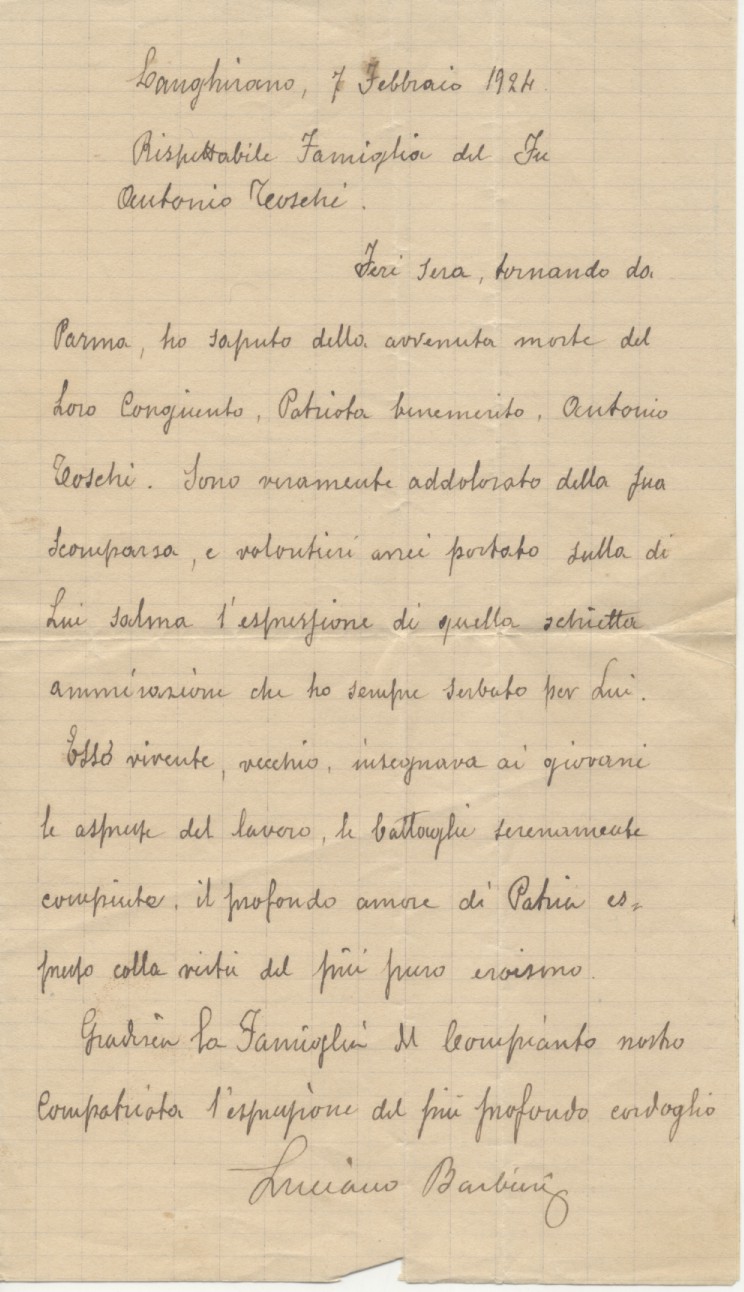 Langhirano, 7 Febbraio 1924.
Rispettabile Famiglia del Fu
Antonio Toschi.
Ieri sera, tornando da
Parma, ho saputo della avvenuta morte del
Loro Congiunto, Patriota benemerito, Antonio
Toschi. Sono veramente addolorato della sua
scomparsa, e volontieri avrei portato sulla di
Lui salma l'espressione di quella schietta
ammirazione che ho sempre serbato per Lui.
Esso vivente, vecchio, insegnava ai giovani
le asprezze del lavoro, le battaglie serenamente
compiute, il profondo amore di Patria es=
presso colla virtù del più puro eroismo.
Gradisca la Famiglia del Compianto nostro
Compatriota l'espressione del più profondo cordoglio
Luciano Barbieri